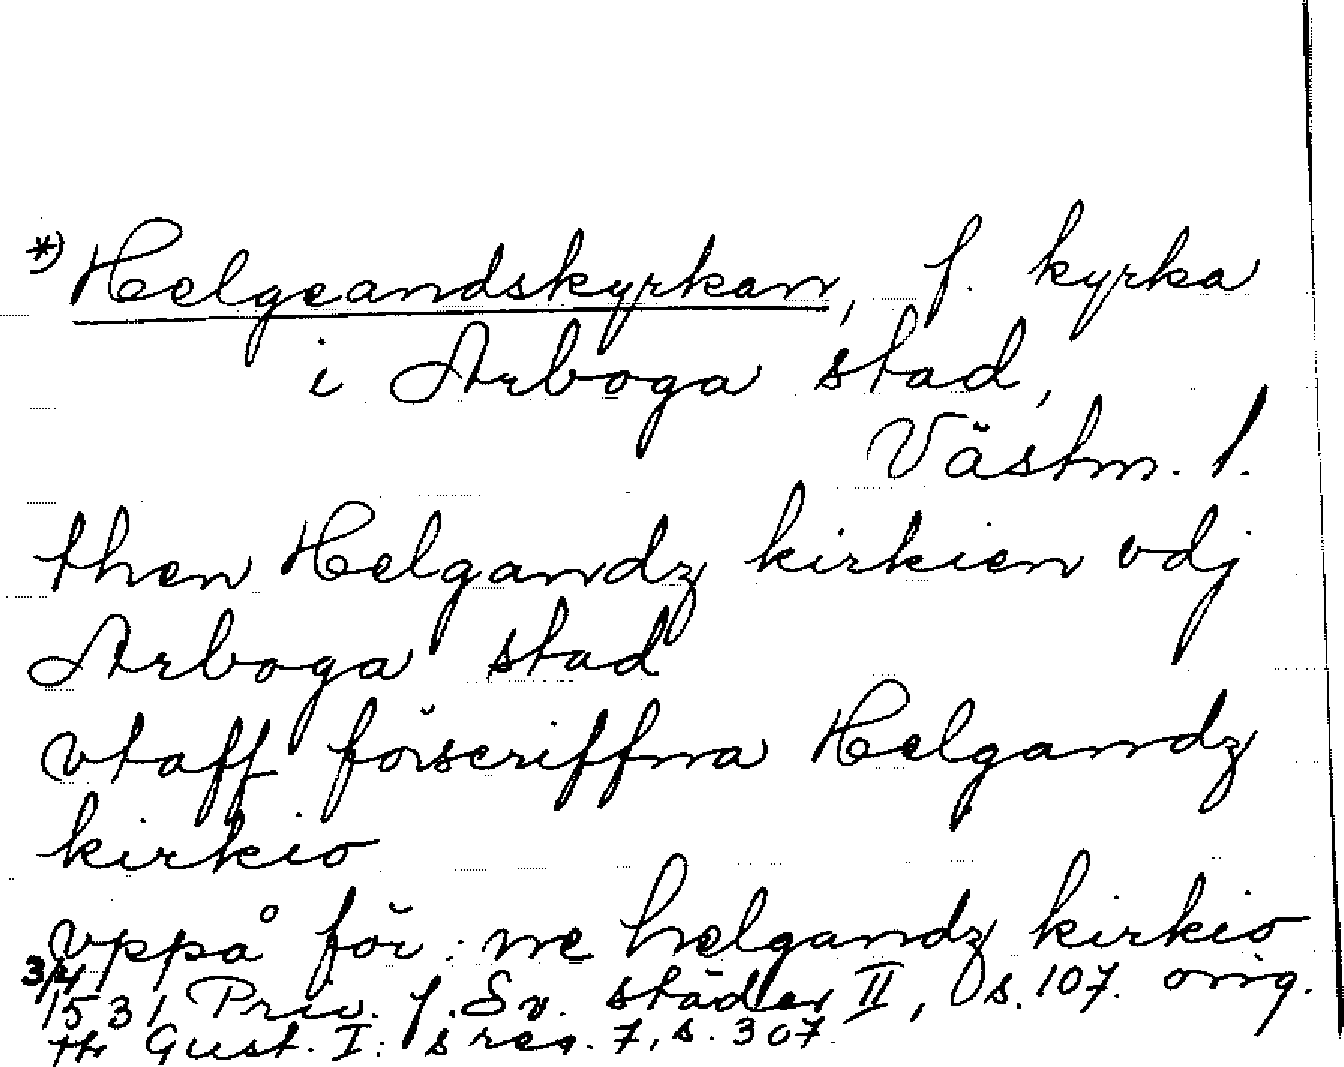 *) Helgeandskyrkan, f. kyrka
i Arboga stad,
Västm. l.
then Helgandz kirkien vdj
Arboga stad
vtaff förscriffna Helgandz
kirkio
vppå för: ne helgandz kirkio
3/4 1531 Priv. f. Sv. städer II, s. 107. orig.
tr. Gust. I: s reg. 7, s. 307.